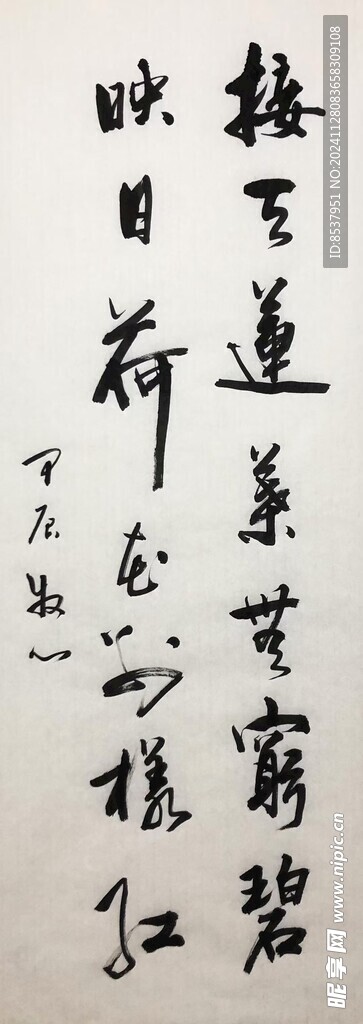 接天蓮葉無窮碧
映日荷花別樣紅
甲辰牧心
ID:8537951 NO:20241128083658309108
昵享网 www.nipic.cn